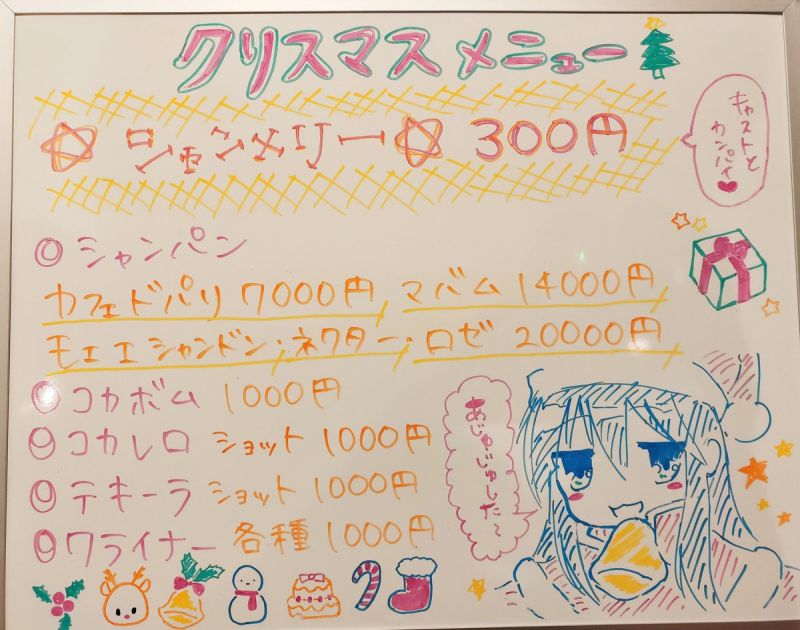 クリスマスメニュー
シャンメリー 300円
キャストと
カンパイ
◎シャンパン
カフェドパリ 7000円, マバム 14000円
モエエシャンドン・ネクター・ロゼ 20000円
◎コカボム 1000円
◎コカレロ ショット 1000円
◎テキーラ ショット 1000円
◎クライナー 各種 1000円